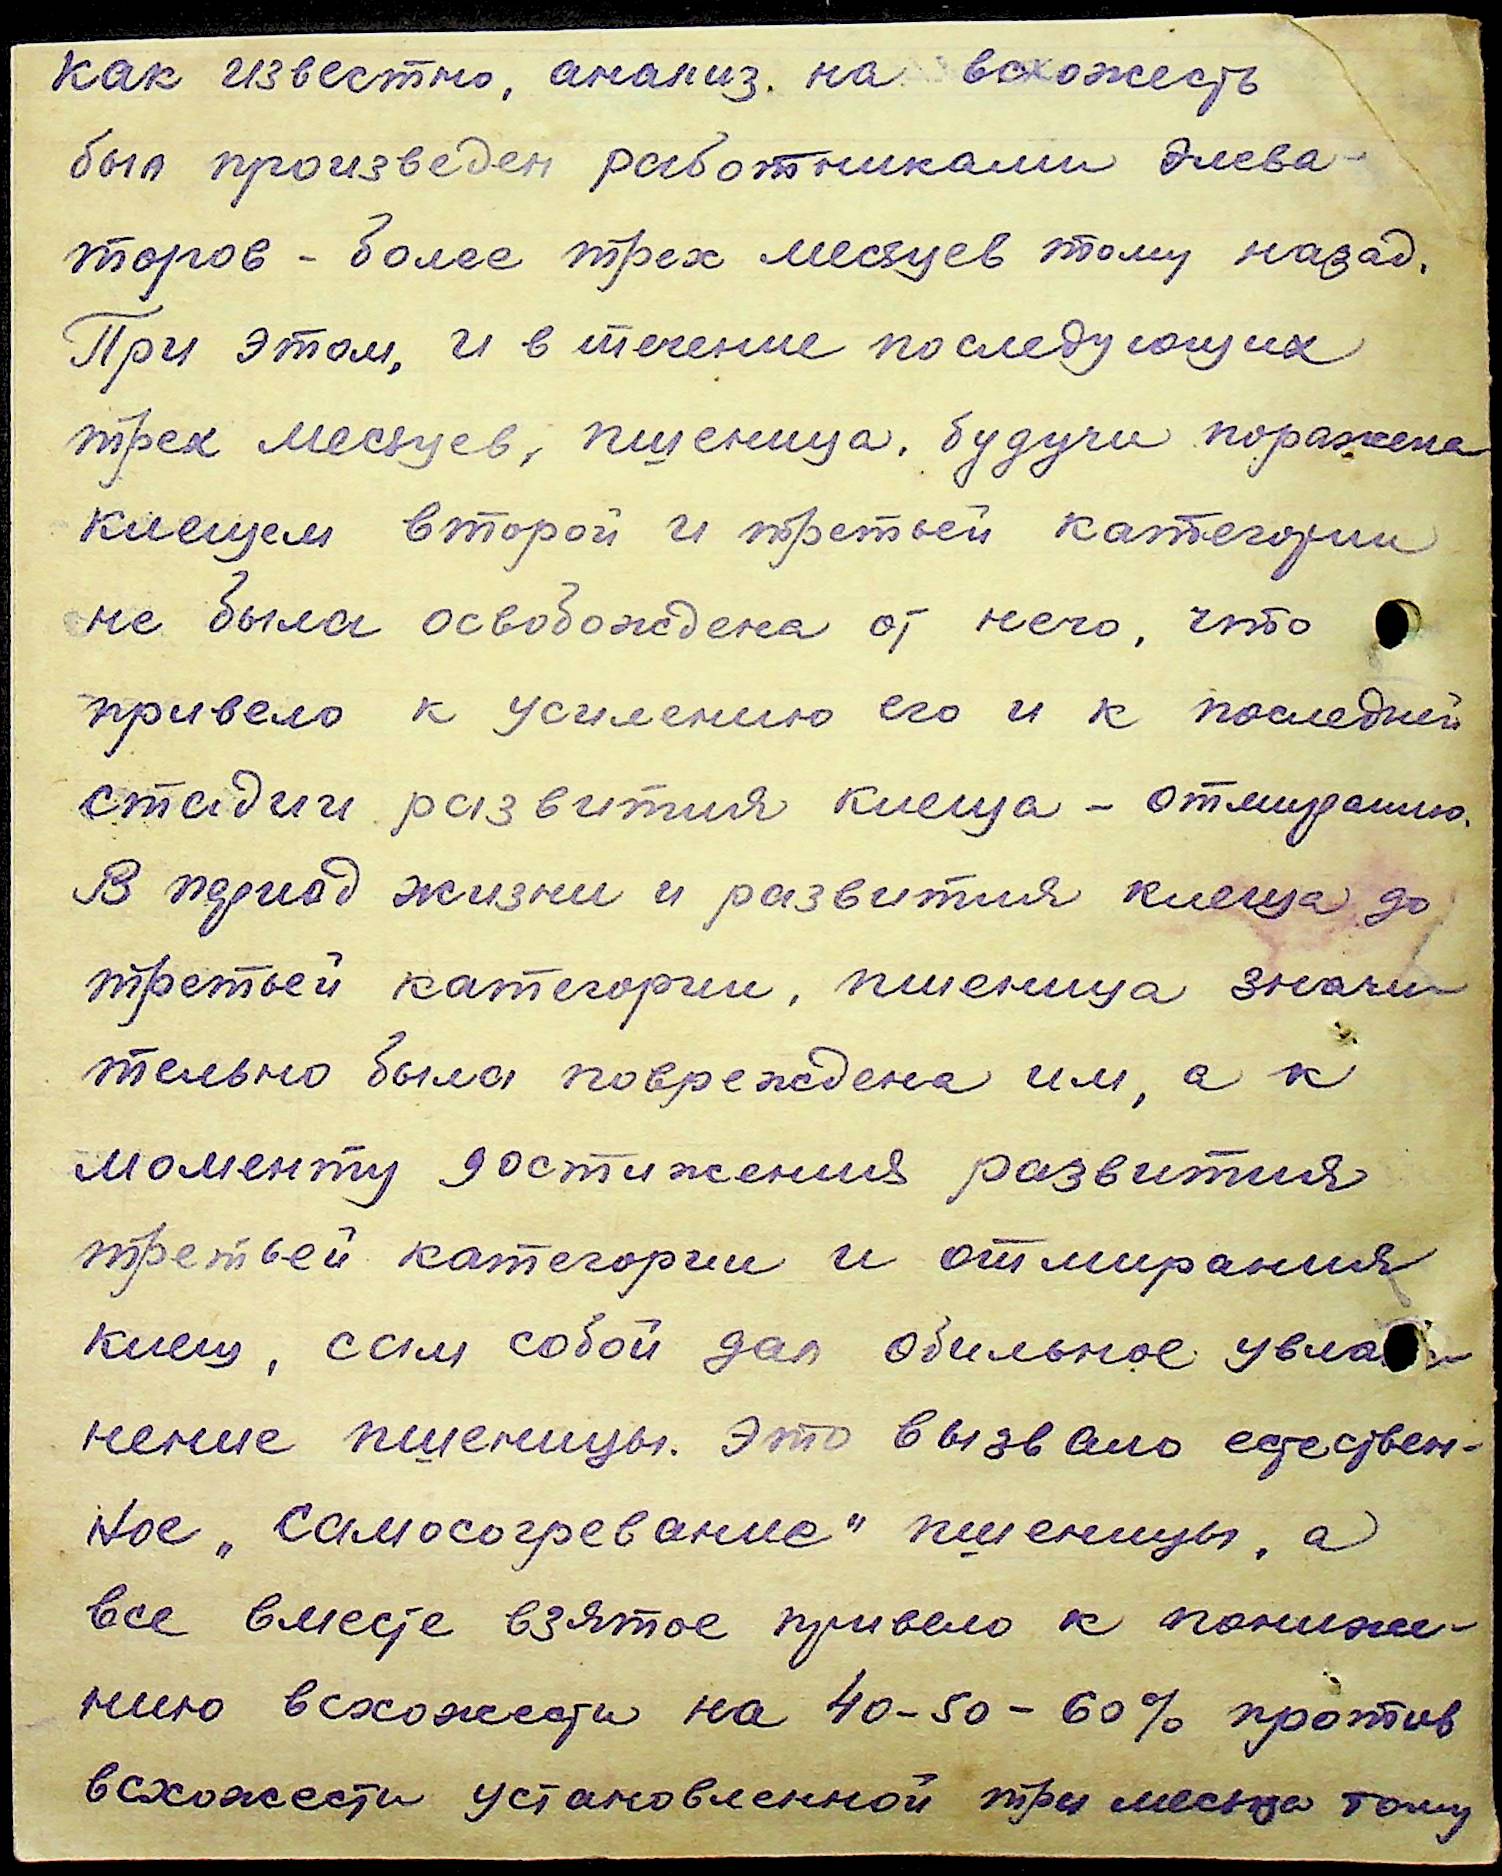 Как известно, анализ на всхожесть
был произведен работниками элева-
торов - более трех месяцев тому назад.
При этом, и в течение последующих
трех месяцев, пшеница, будучи поражена
клещем второй и третьей категории
не была освобождена от него, что
привело к усилению его и к последней
стадии развития клеща - отмиранию.
В период жизни и развития клеща до
третьей категории, пшеница значи-
тельно была повреждена им, а к
моменту достижения развития
третьей категории и отмирания
клещ, сам собой дал обильное увлаж-
нение пшеницы. Это вызвало естествен-
ное „Самосогревание" пшеницы, а
все вместе взятое привело к пониже-
нию всхожести на 40-50-60% против
всхожести установленной три месяца тому